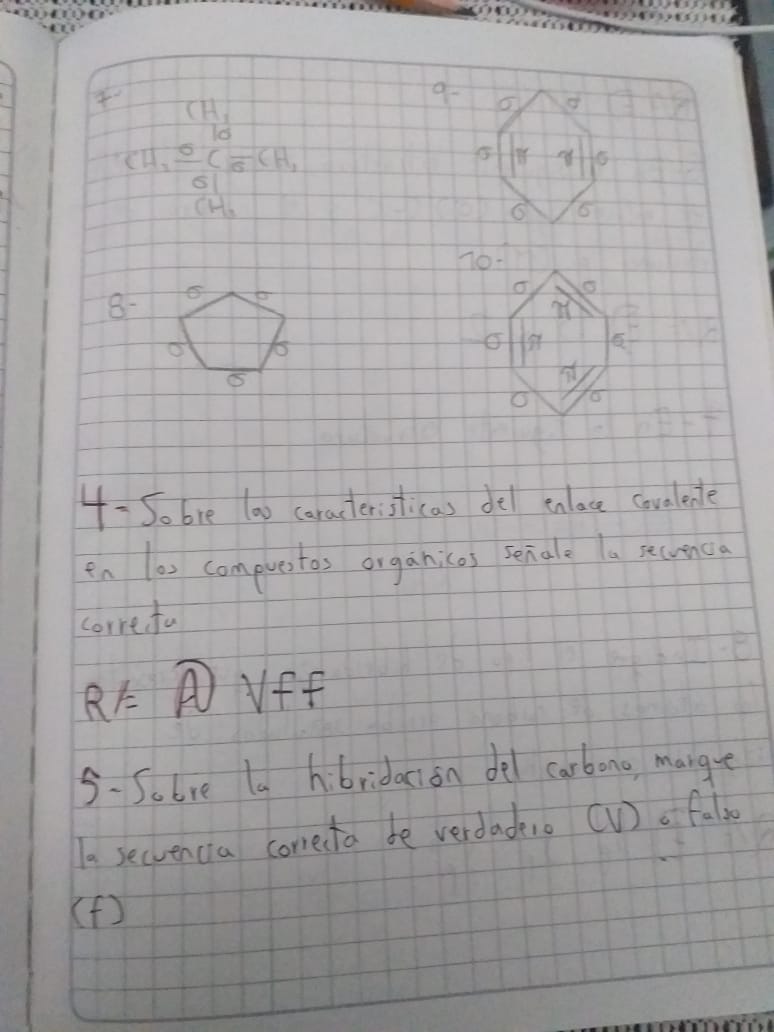 7-
CH₃
σ
CH₃ σ C σ CH₃
σ
CH₃
8-
σ σ
σ σ
σ
9-
σ σ
σ π π σ
σ σ
10-
σ σ
π
σ π σ
π
σ σ
4-Sobre las caracteristicas del enlace covalente
en los compuestos orgánicos señale la secuencia
correcta
R/= A) Vff
5-Sobre la hibridación del carbono, marque
la secuencia correcta de verdadero (V) o falso
(f)